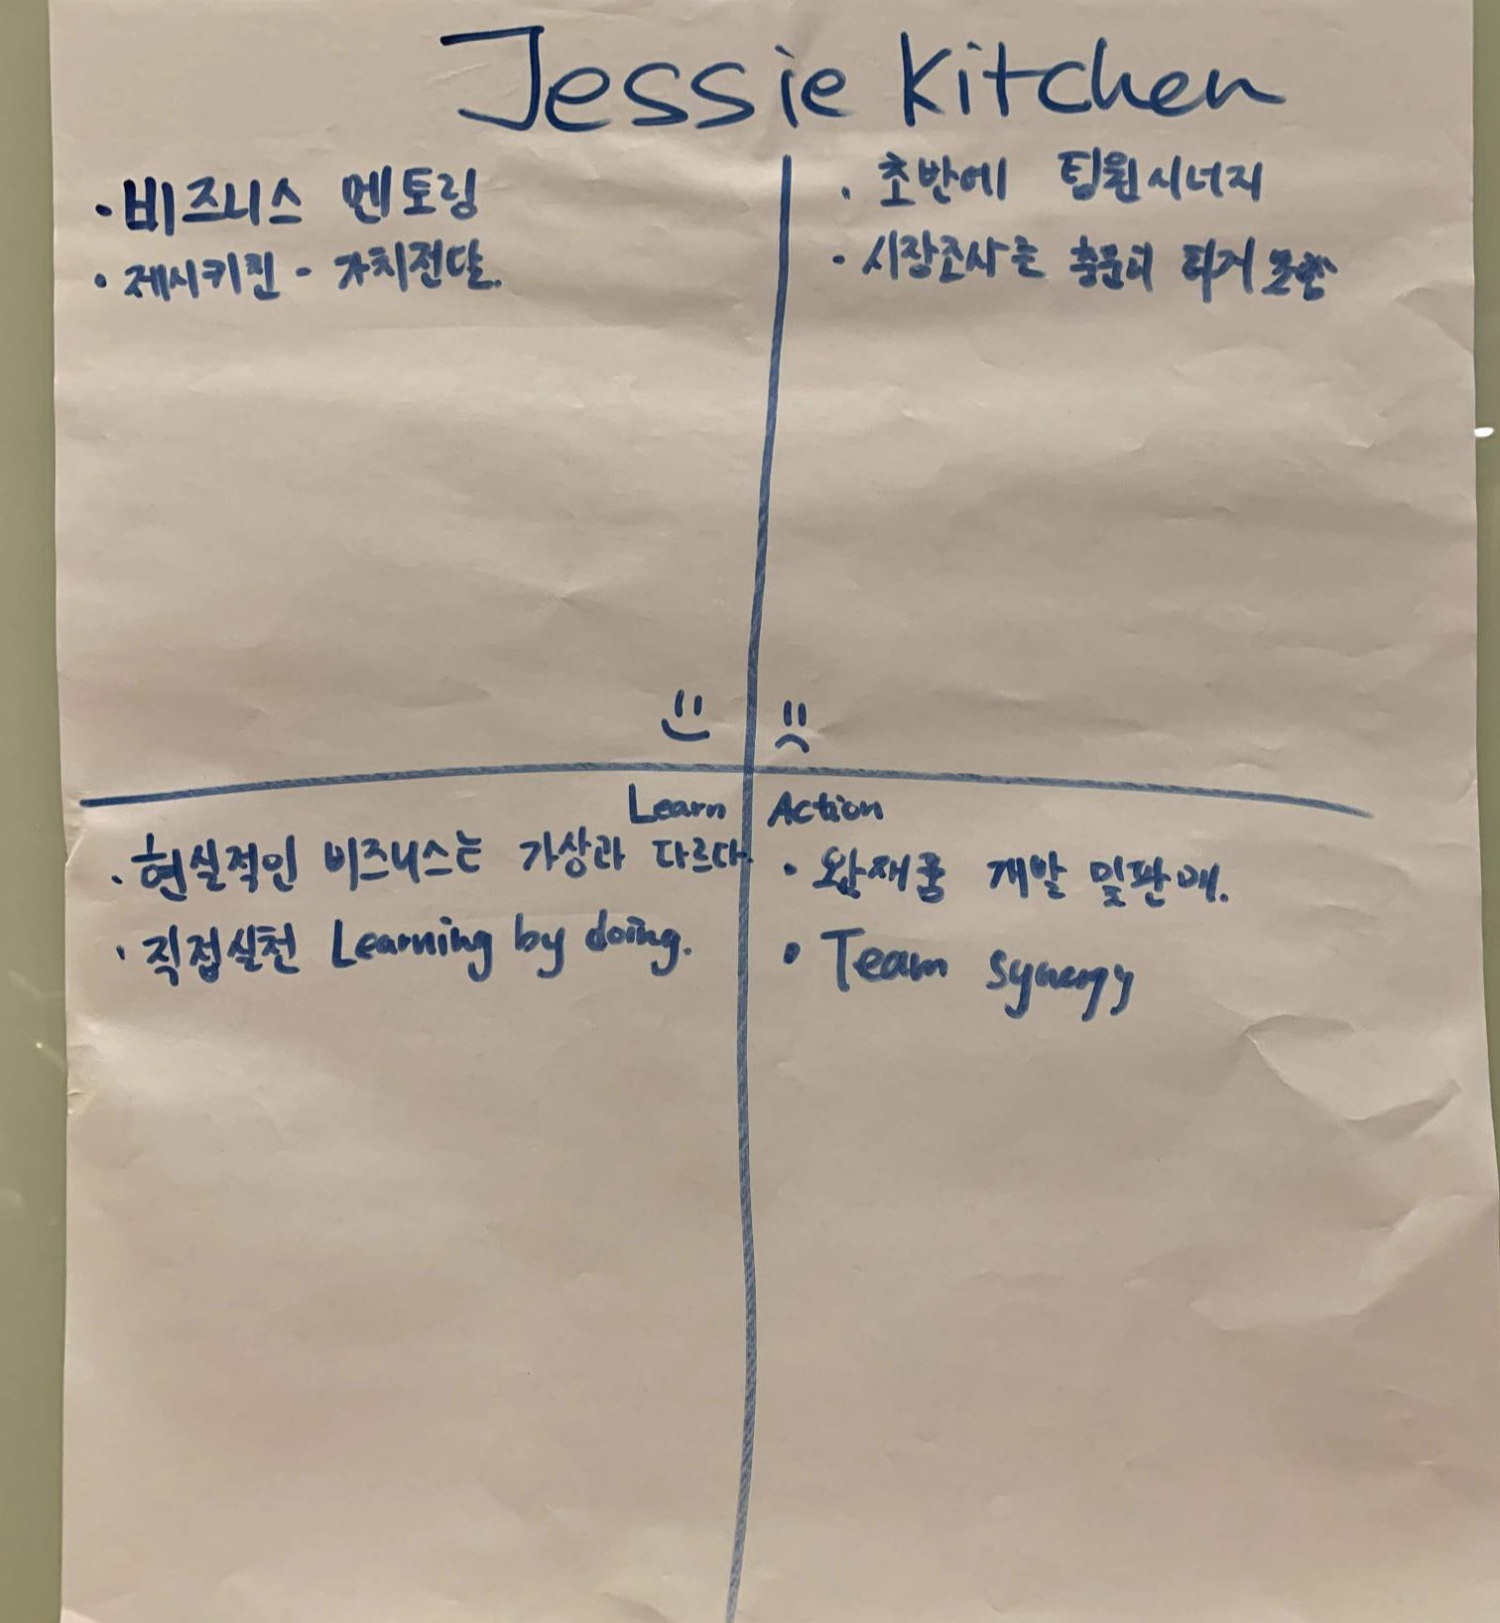 Jessie Kitchen
· 비즈니스 멘토링
· 제시키친 - 가치전달.
· 초반에 팀원시너지
· 시장조사는 충분히 하지 못함
Learn
· 현실적인 비즈니스는 가상과 다르다.
· 직접실천 Learning by doing.
Action
· 개발 및 판매.
· Team synergy